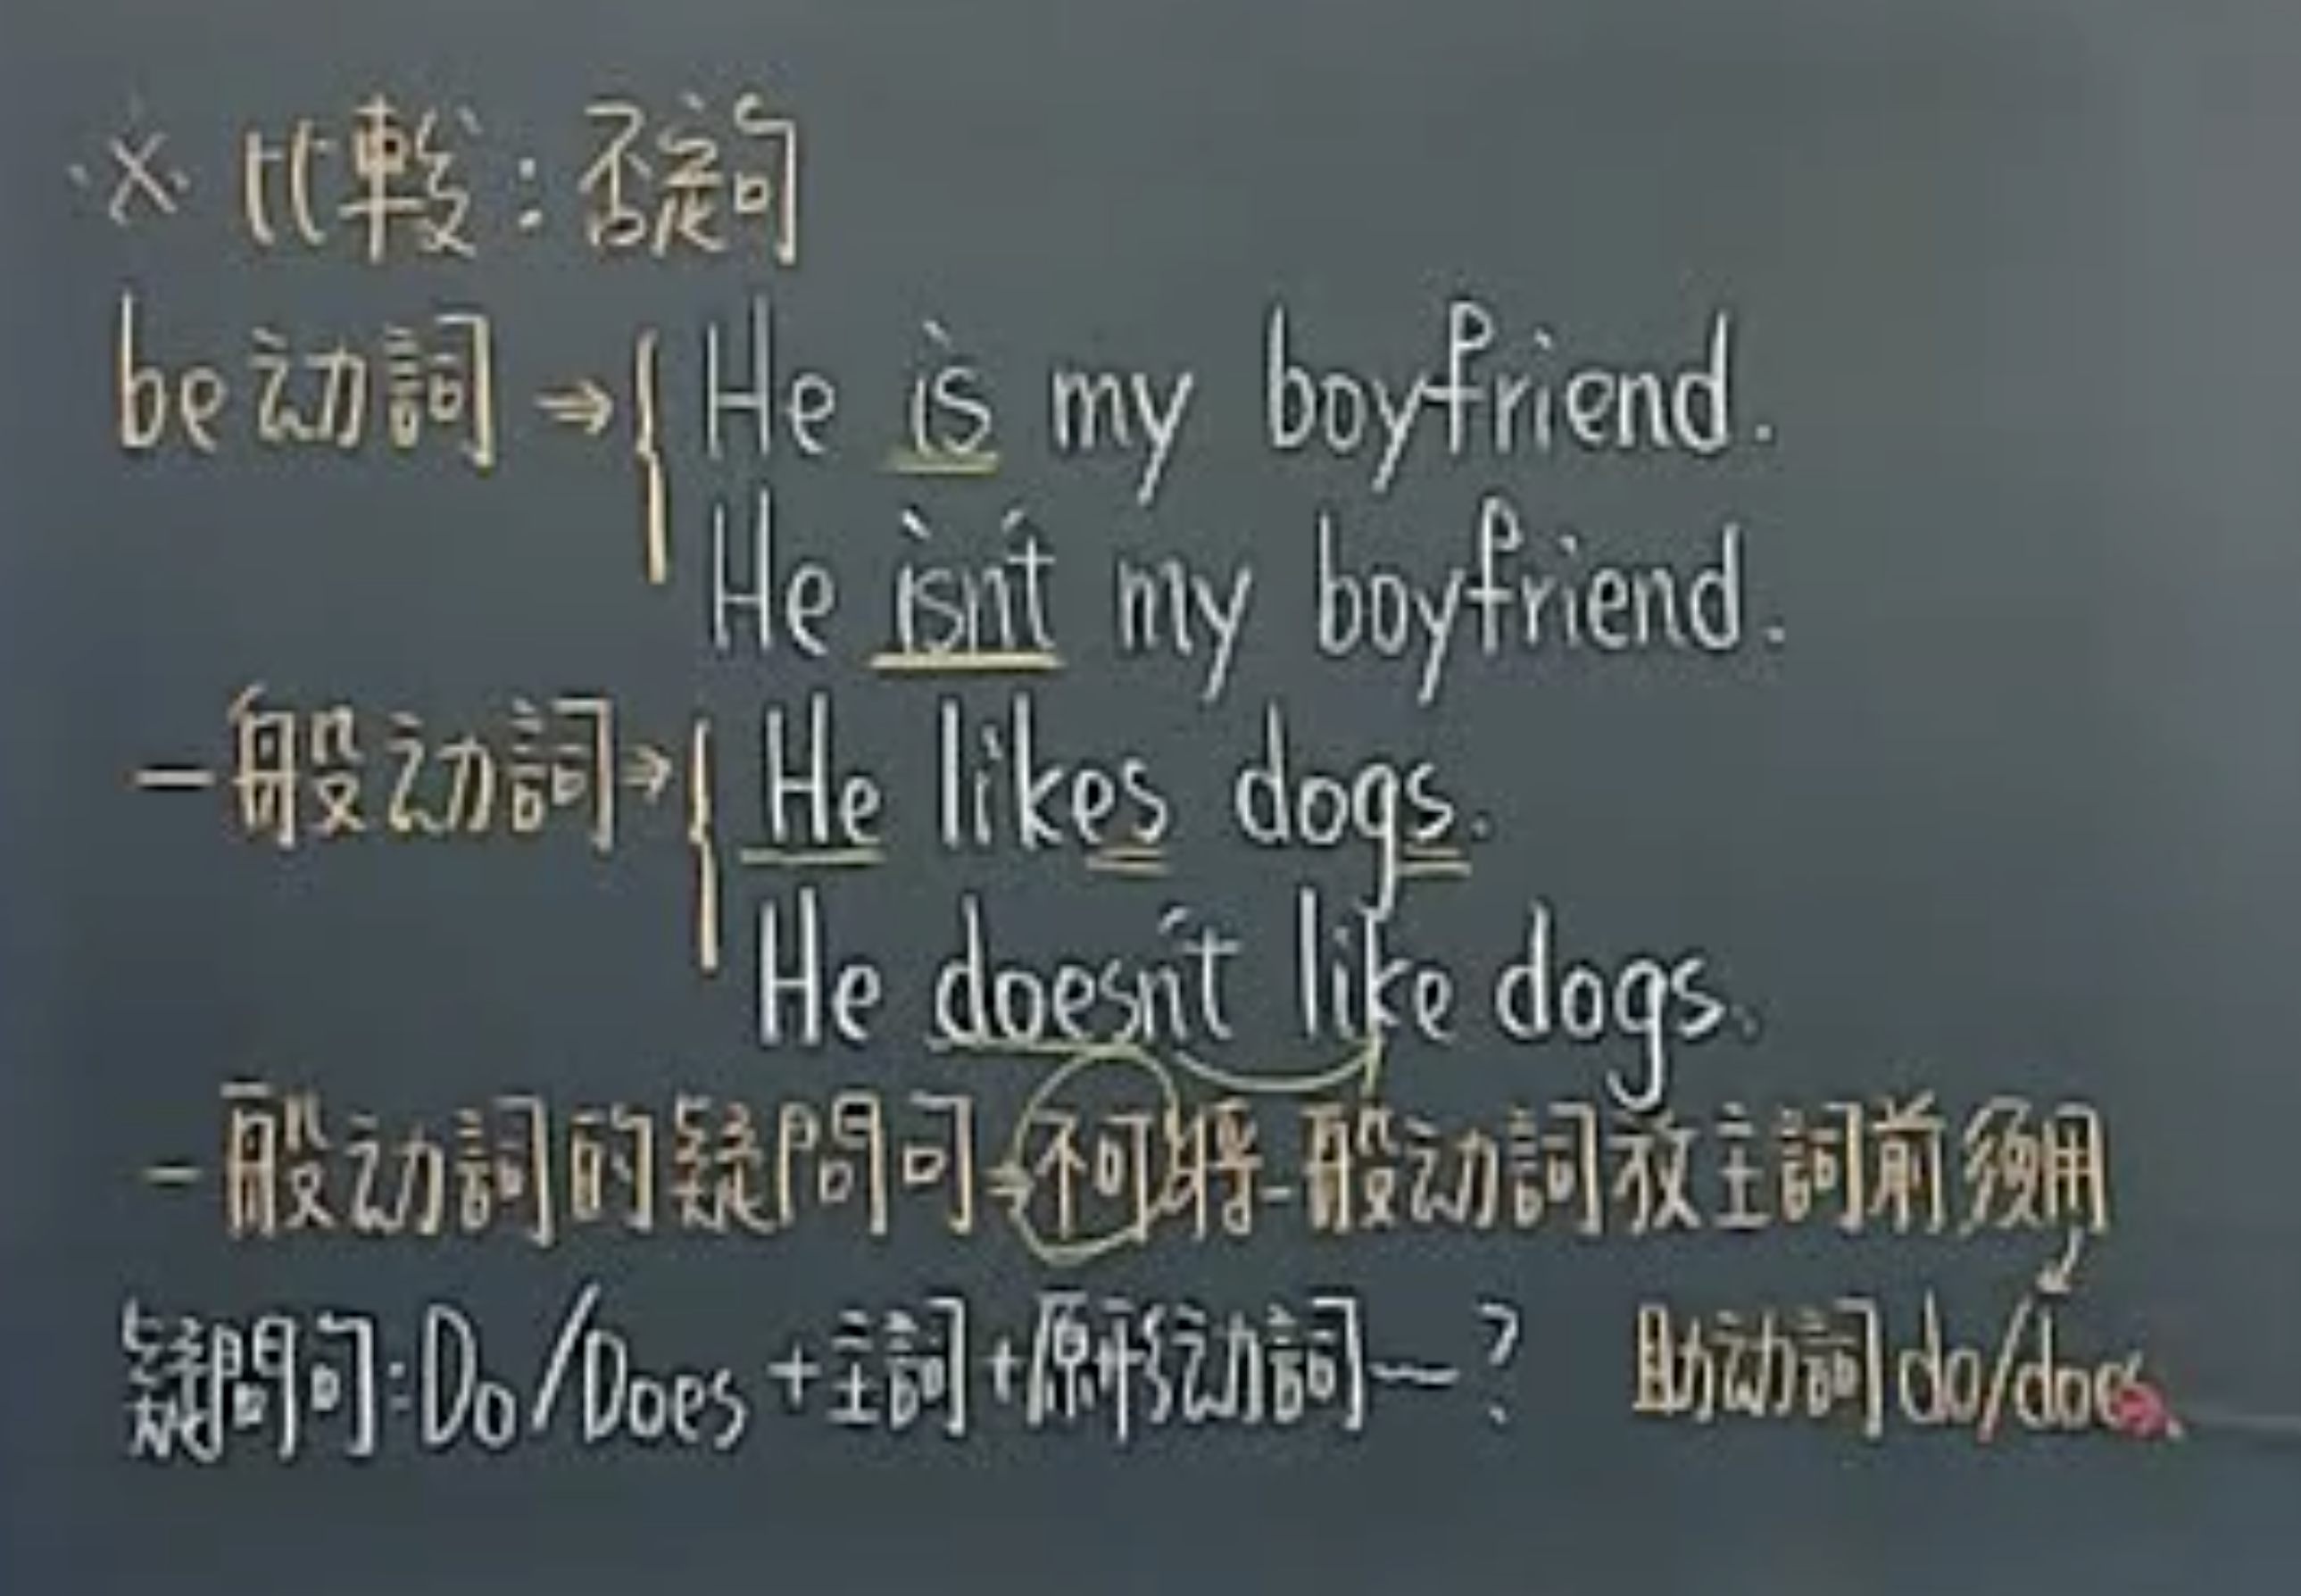 ※ 比較:否定句
be动詞 ⇒ { He is my boyfriend.
He isn't my boyfriend.
一般动詞 → { He likes dogs.
He doesn't like dogs.
一般动詞的疑問句→不可將一般动詞放主詞前須用
疑問句:Do/Does+主詞+原形动詞~? 助动詞do/does